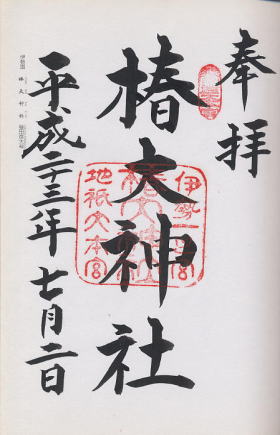 奉拝
椿大神社
平成二十三年七月二日
伊勢一宮
椿大神社
地祇大本宮